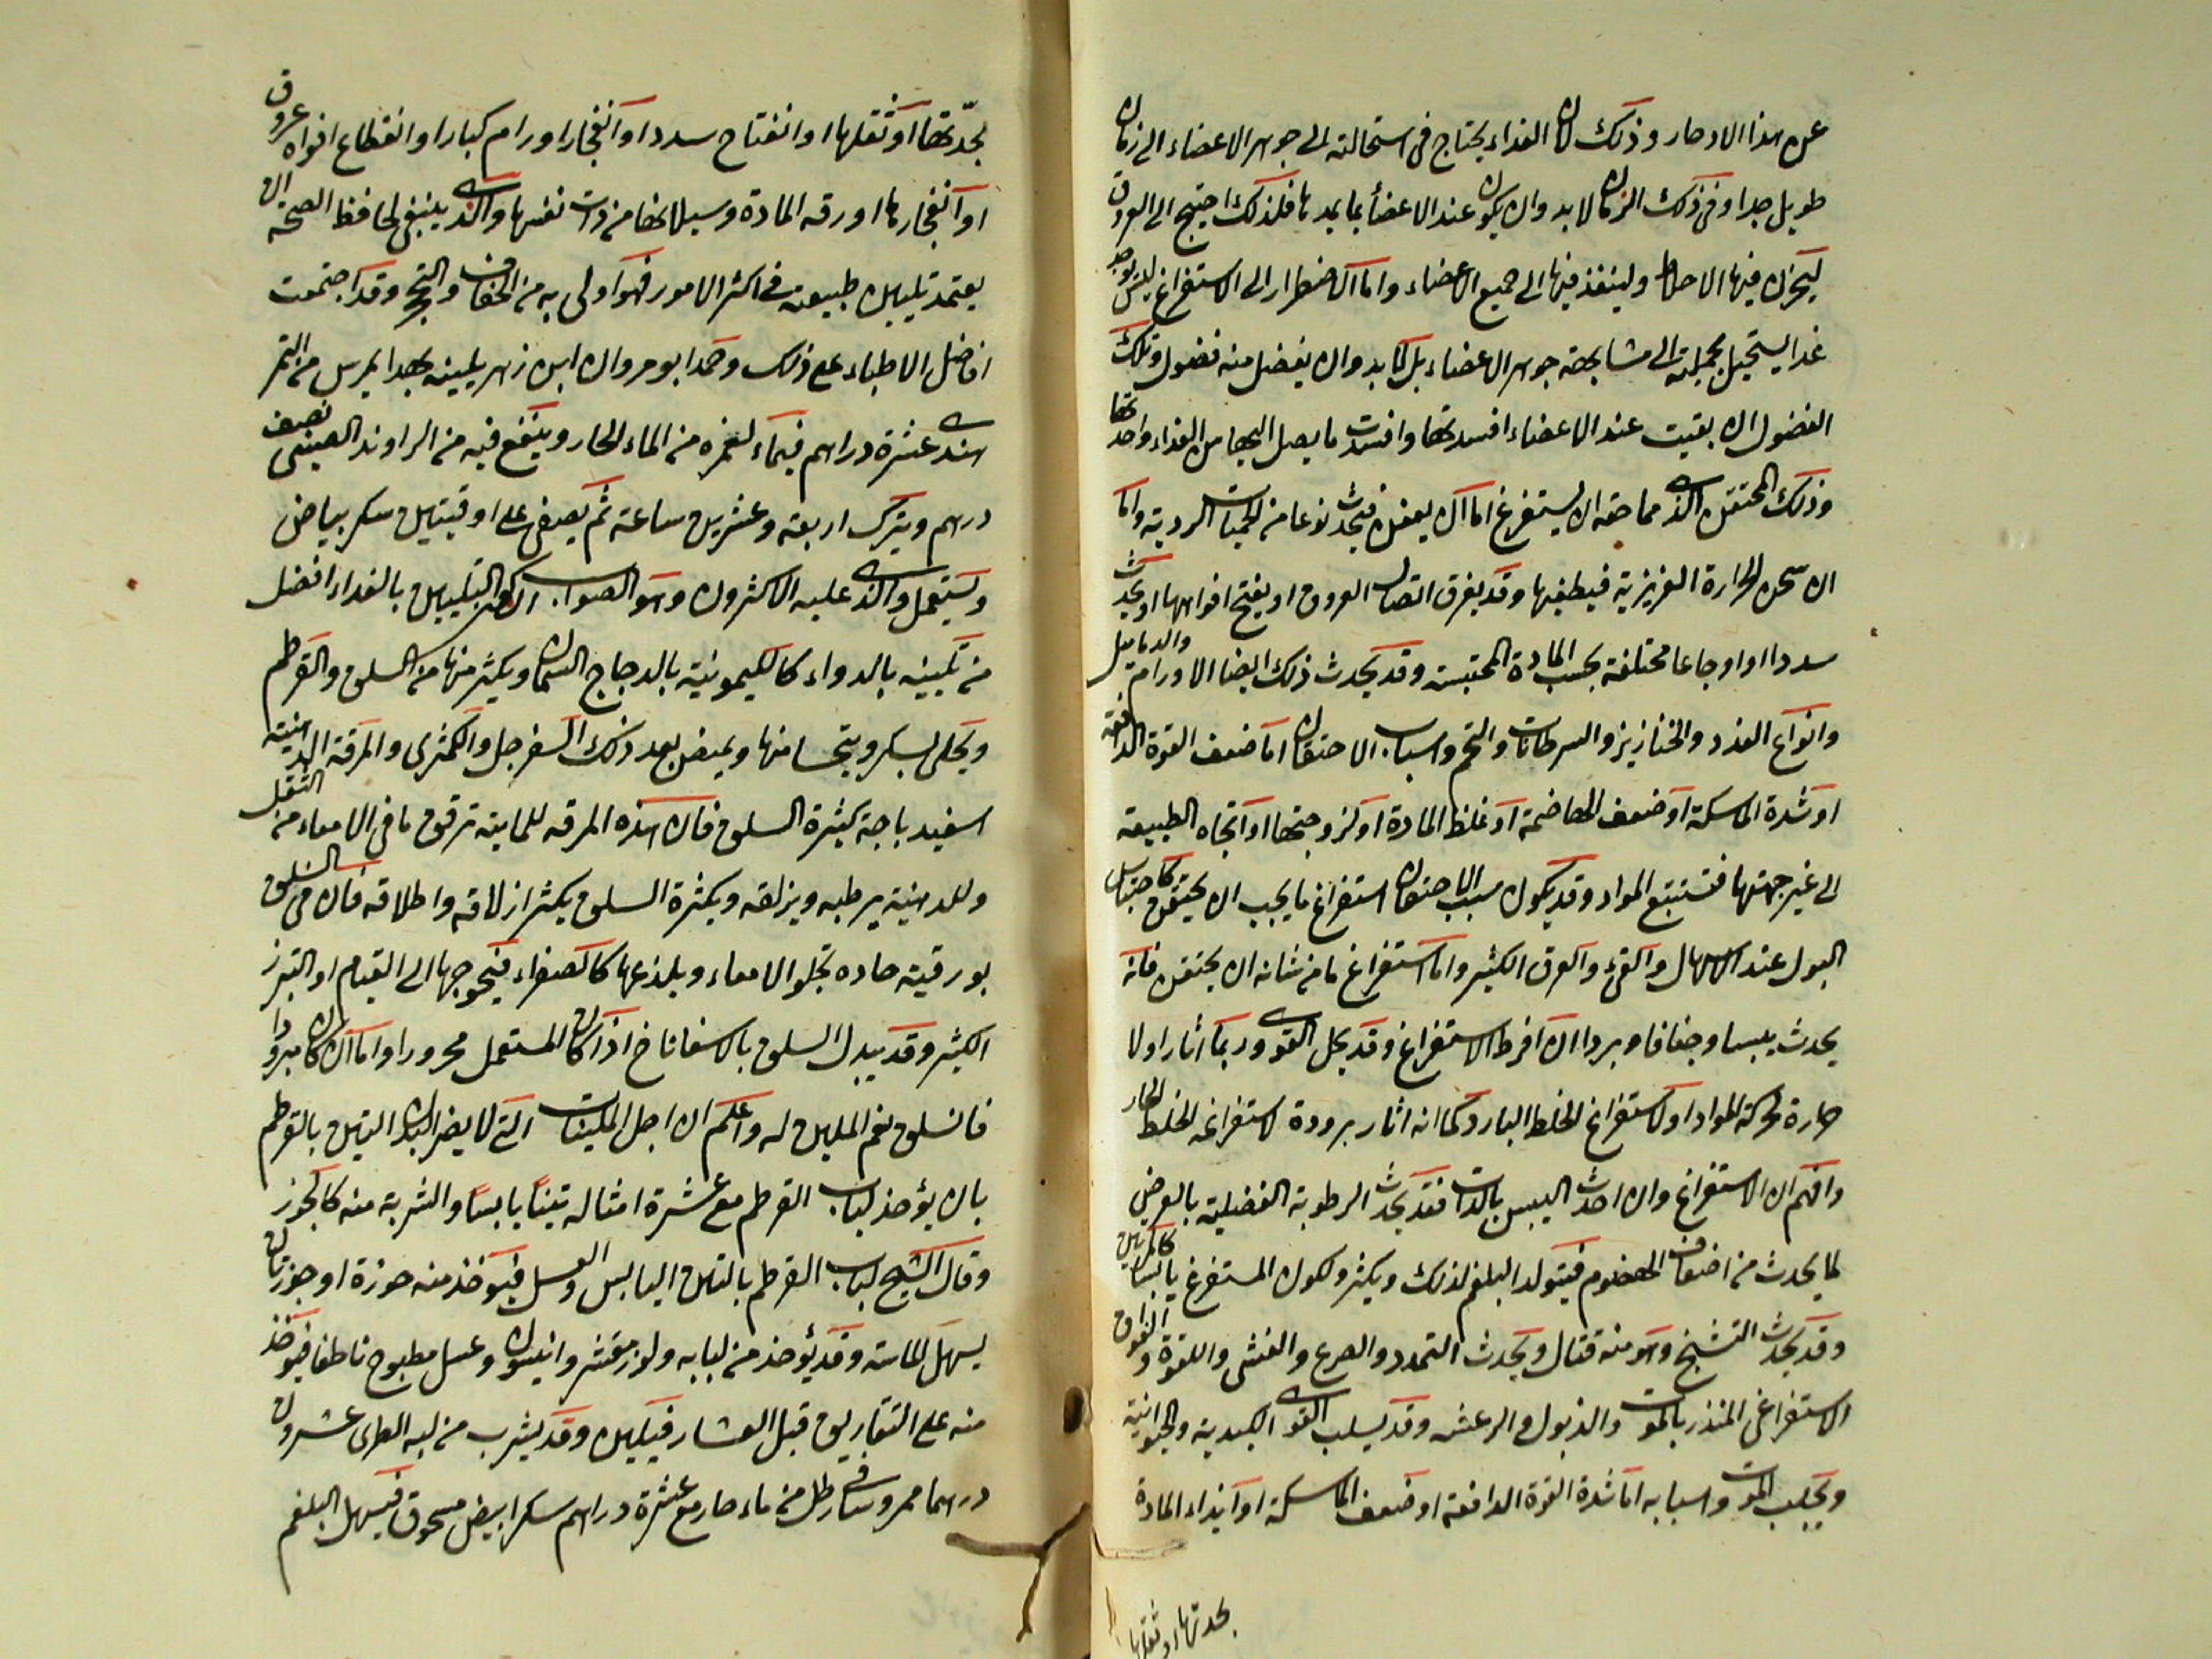 عن هذا الادخار وذلك لان الغذاء يحتاج فى استحالته الى جوهر الاعضاء الى زمان
طويل جدا وفى ذلك الزمان لابد وان يكون عند الاعضاء ما يمدها فلذلك احتيج الى العروق
ليخزن فيها الاخلاط ولينفذ فيها الى جميع الاعضاء واما الاضطرار الى الاستفراغ فليس يوجد
غذا يستحيل بجملته الى مشابهة جوهر الاعضاء بل لابد وان يفضل منه فضول وتلك
الفضول ان بقيت عند الاعضاء افسدتها وافسدت ما يصل اليها من الغذاء واحدتها
وذلك المحتقن الذى مما حقه ان يستفرغ اما ان يعفن فيحدث نوعا من الحميات الردية واما
ان سخن الحرارة الغريزية فيطفيها وقد يفرق اتصال العروق او يفتح افواهها او يحدث
سددا او اوجاعا مختلفة بحسب المادة المحتبسة وقد يحدث ذلك ايضا الاورام والدماميل
وانواع الغدد والخنازيز والسرطانات والتخم واسباب الاحتقان اما ضعف القوة الدافعة
او شدة الماسكة او ضعف الهاضمة او غلظ المادة او لزوجتها او اتجاه الطبيعة
الى غير جهتها فتستتبع المواد وقد يكون سبب الاحتقان استفراغ ما يجب ان يحتقن كاحتباس
البول عند الاسهال والقئ والعرق الكثير واما استفراغ ما من شانه ان يحتقن فانه
يحدث يبسا وجفافا وبردا ان افرط الاستفراغ وقد يحل القوى وربما اثار اولا
حرارة لحركة المواد او لاستفراغ الخلط البارد كما انه اثار برودة لاستفراغه الخلط الحار
وافهم ان الاستفراغ وان احدث اليبس بالذات فقد يحدث الرطوبة الفضلية بالعرض
لما يحدث من اضعاف الهضوم فيتولد البلغم لذلك ويكثر ولكون المستفرغ يابسا كالمرتين
وقد يحدث التشنج وهو منه قتال ويحدث التمدد والصرع والغشى واللقوة والفواق
الاستفراغى المنذر بالموت والذبول والرعشه وقد يسلب القوى الكبدية والحيوانية
ويجلب الموت واسبابه اما شدة القوة الدافعة او ضعف الماسكة او ايذاء المادة
بحدتها او ثقلها
بحدّتها او ثقلها او انفتاح سددا او انفجار اورام كبار او انقطاع افواه عروق
او انفجارها او رقه المادة وسيلانها من ذات نفسها والذى ينبغى لحافظ الصحه ان
يعتمد تليين طبيعته فى اكثر الامور فهو اولى به من الجفاف والتحجر وقد اجتمعت
افاضل الاطباء على ذلك وحمد ابو مروان ابن زهر يلينه بهذا يمرس من التمر
هندى عشرة دراهم فيماء لغمره من الماء الحار وينقع فيه من الراوند الصينى نصف
درهم ويترك اربعة وعشرين ساعة ثم يصفى على اوقيتين سكر بياض
ويستعمل والذى عليه الاكثرون وهو الصواب ان التليين بالغذاء افضل
من تليينه بالدواء كالليمونية بالدجاج السمان ويكثر منها من السلق والقرطم
ويحلى بسكر ويتحسا منها ويمص بعد ذلك السفرجل والكمثرى والمرقة الدهنية
اسفيدباجة كثيرة السلق فان هذه المرقه للمايته ترقق ما فى الامعاء من الثفل
وللدهنية يرطبه ويزلقه وبكثرة السلق يكثر ازلاقه واطلاقه فان فى السلق
بورقية حاده تجلو الامعاء ويلذعها كالصفراء فيحوجها الى القيام او التبرز
الكثير وقد يبدل السلق بالاسفاناخ اذا كان المستعمل محرورا واما ان كان مبرودا
فالسلق نعم الملين له واعلم ان اجل الملينات التى لا يضر البدن التين بالقرطم
بان يؤخذ لباب القرطم مع عشرة امثاله تيناً يابساً والشربة منه كالجوز
وقال الشيخ لباب القرطم بالتين اليابس والعسل فيؤخذ منه جوزة او جوزتان
يسهل للمائية وقد يؤخذ من لبابه ولوز مقشر وانيسون وعسل مطبوخ ناطفا فيؤخذ
منه على التفاريق قبل العشا فيلين وقد يشرب من لبه الطرى عشرون
درهما ممروسا فى رطل من ماء حار مع عشرة دراهم سكر ابيض مسحوق فيسهل البلغم